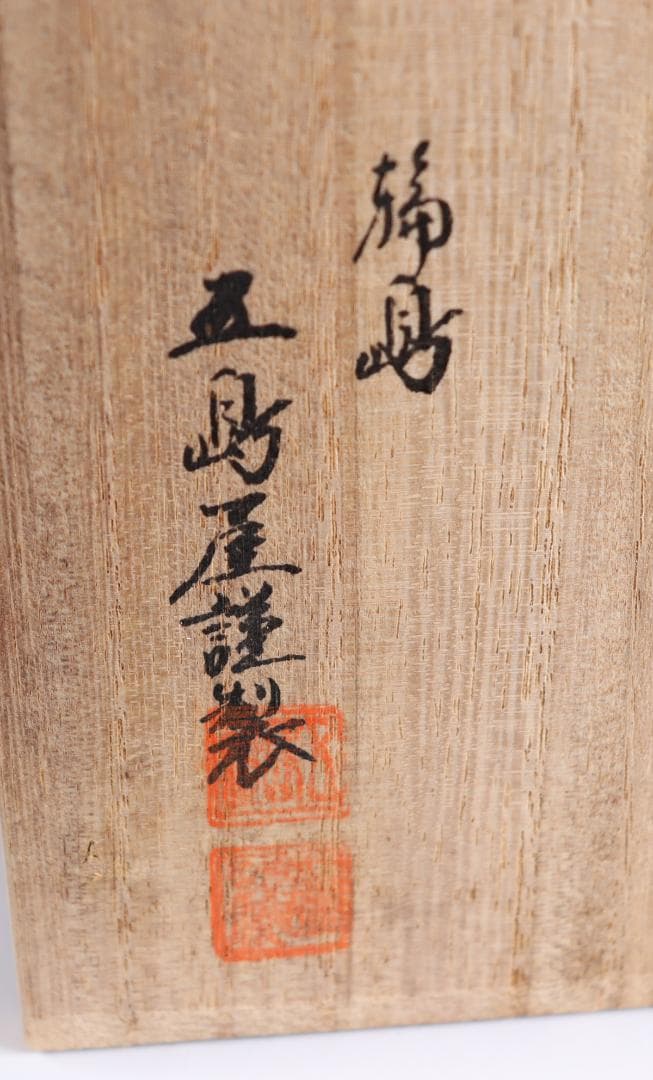 輪島
五島屋謹製